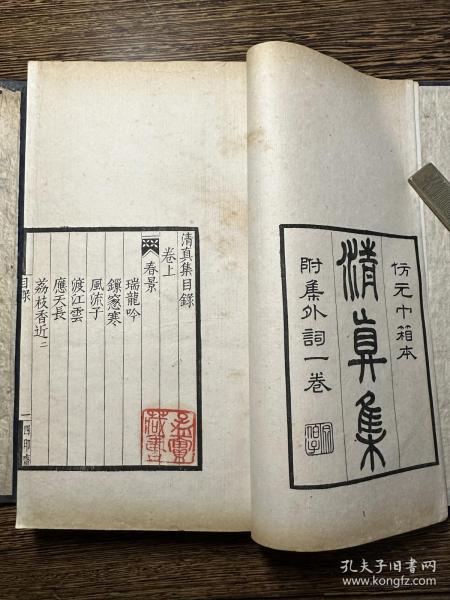 仿元巾箱本
清真集
附集外詞一卷
清真集目錄
卷上
春景
瑞龍吟
鏁窻寒
風流子
渡江雲
應天長
荔枝香近二
目錄 一 四印齋
藏書
孔夫子旧书网
www.kongfz.com